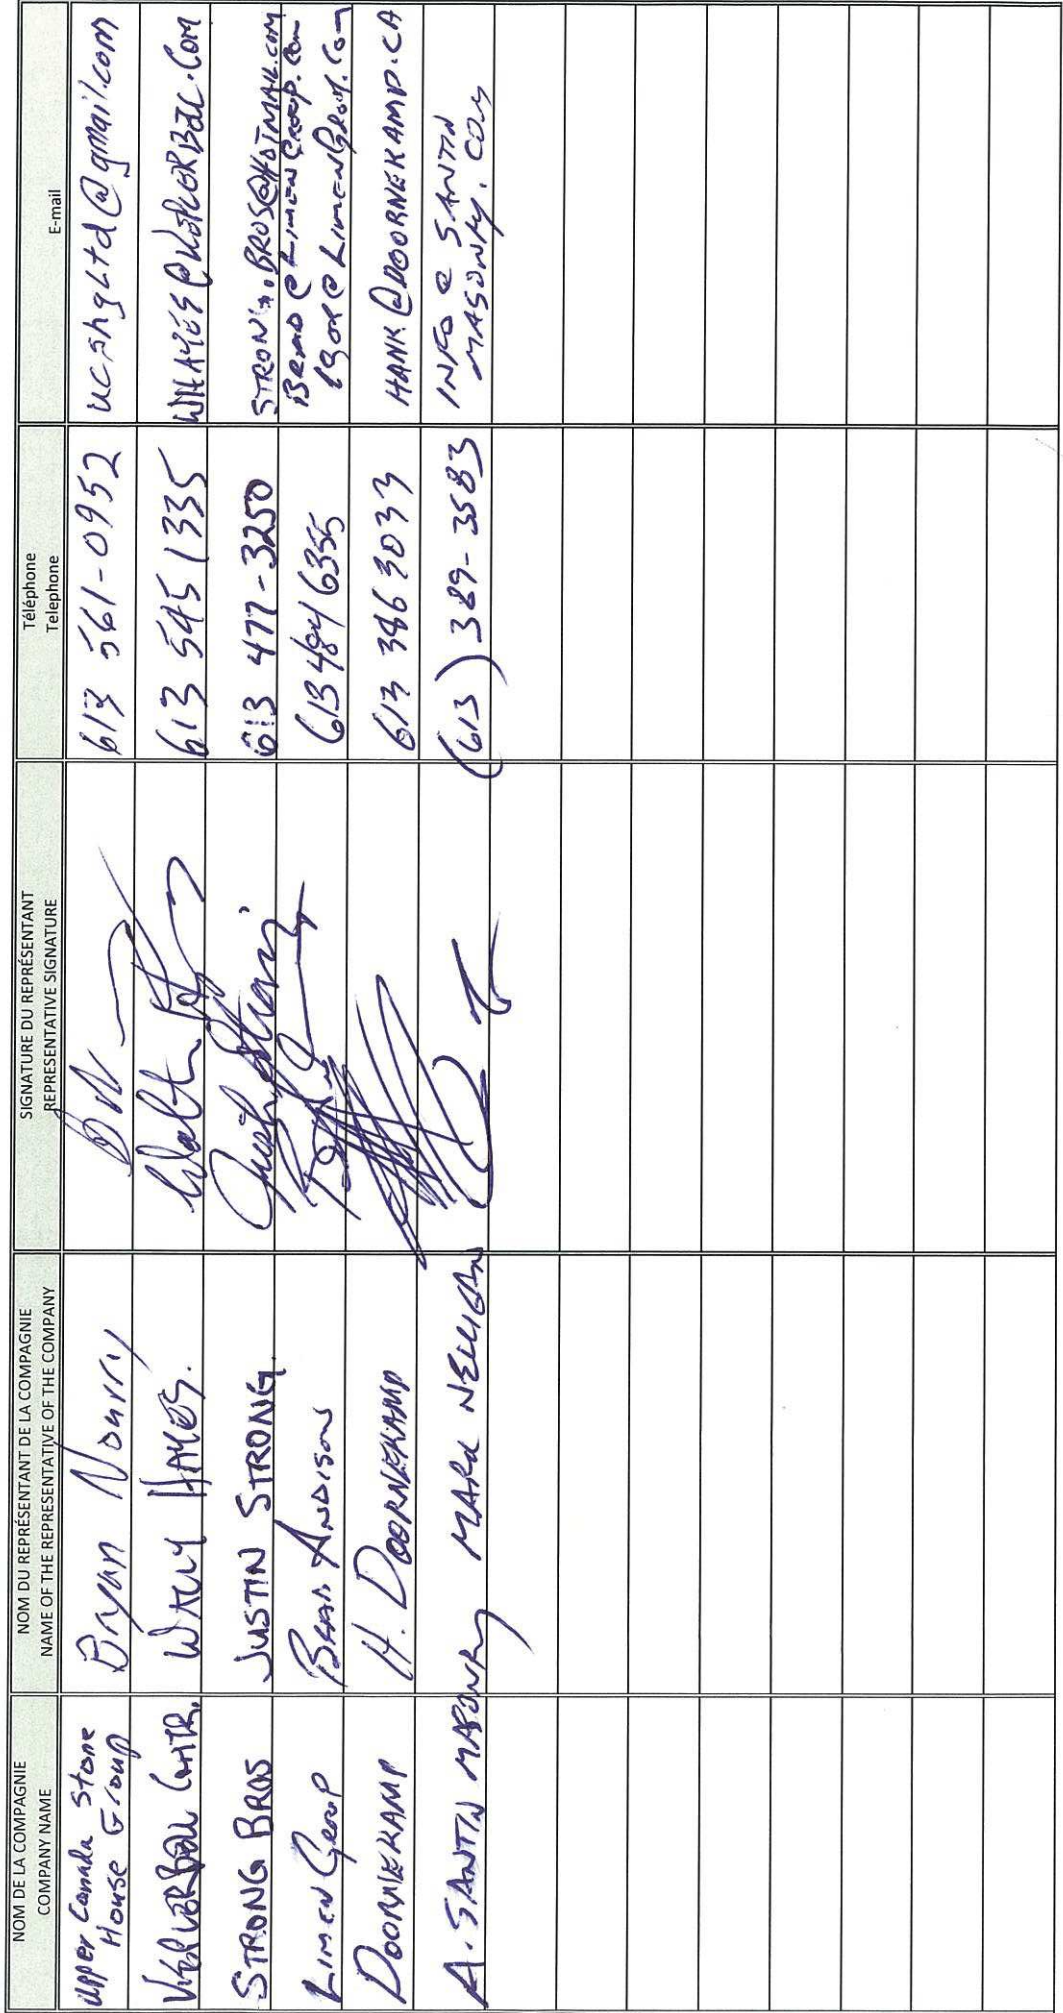 NOM DE LA COMPAGNIE
COMPANY NAME
NOM DU REPRÉSENTANT DE LA COMPAGNIE
NAME OF THE REPRESENTATIVE OF THE COMPANY
SIGNATURE DU REPRÉSENTANT
REPRESENTATIVE SIGNATURE
Téléphone
Telephone
E-mail
Upper Canada Stone
House Group
Bryan Nourry
613 561-0952
ucshgltd@gmail.com
WALLY HAYES.
613 545 1335
STRONG BROS
JUSTIN STRONG.
613 477-3250
STRONG.BROS@HOTMAIL.COM
LIMEN GROUP
BRAD ANDISON
BRAD@LIMENGROUP.COM
IGOR@LIMENGROUP.COM
DOORNEKAMP
H. DOORNEKAMP
613 386 3033
HANK@DOORNEKAMP.CA
A. SANTIN MASONRY
MARK NELLIGAN
(613) 389-3583
INFO @ SANTIN
MASONRY.COM